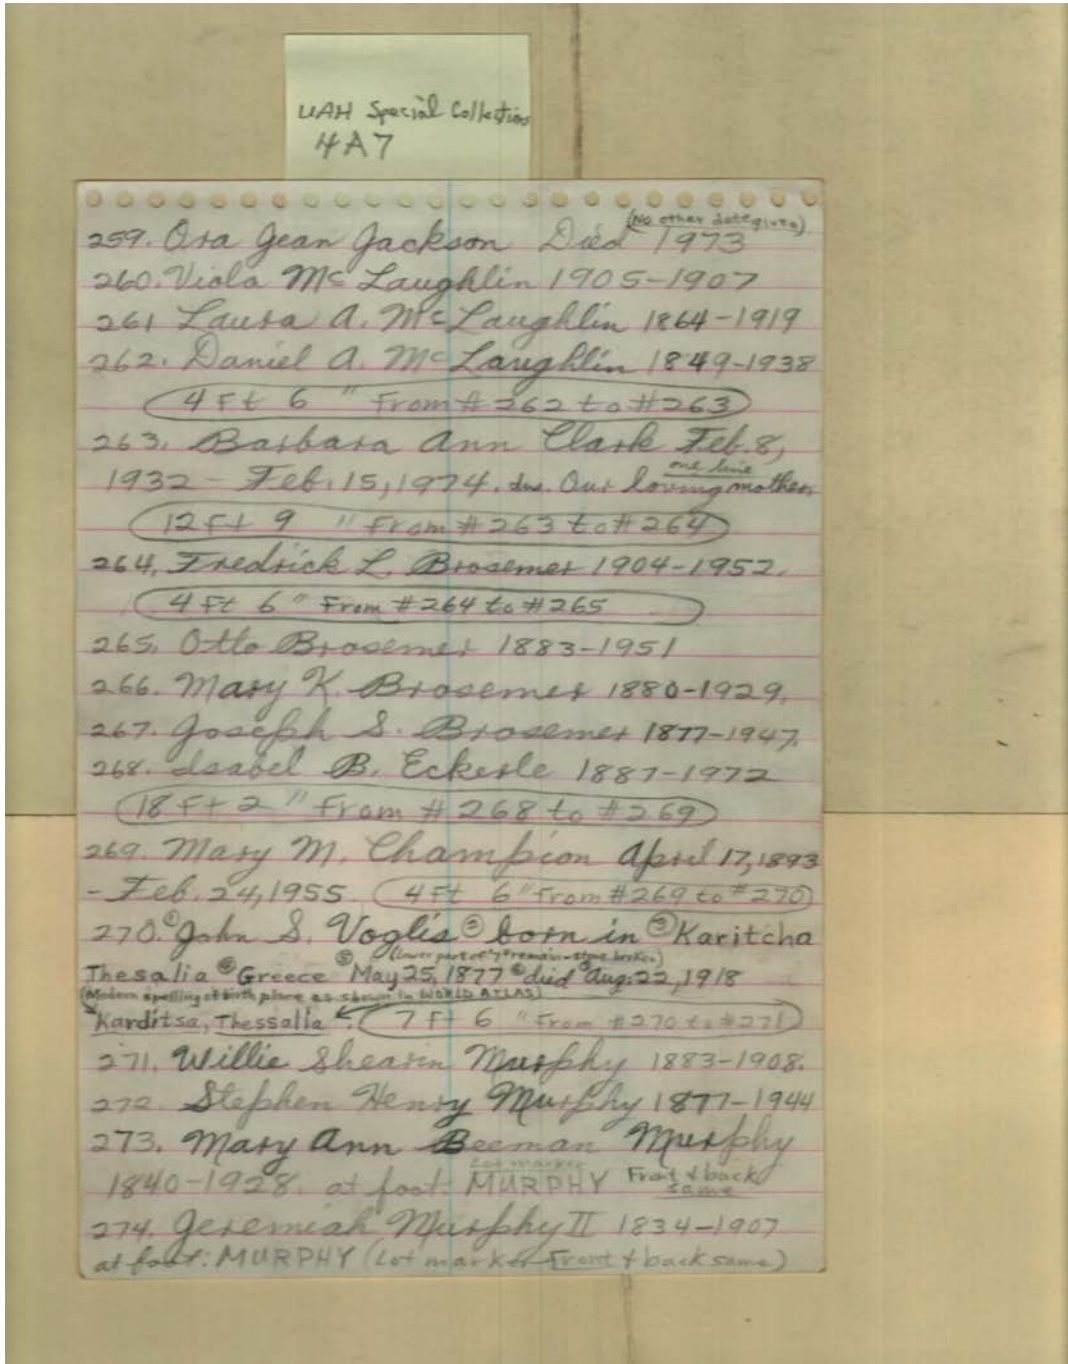 UAH Special Collections
4A7
(No other date given)
259. Ora Jean Jackson Died 1973
260. Viola McLaughlin 1905-1907
261 Laura A. McLaughlin 1864-1919
262. Daniel A. McLaughlin 1849-1938
4 Ft 6 " From #262 to #263
263. Barbara Ann Clark Feb. 8,
one line
1932 - Feb. 15, 1974. ins. Our loving mother.
12 Ft 9 " From #263 to #264
264. Fredrick L. Brosemer 1904-1952.
4 Ft 6 " From #264 to #265
265. Otto Brosemer 1883-1951
266. Mary K. Brosemer 1880-1929.
267. Joseph S. Brosemer 1877-1947.
268. Isabel B. Eckerle 1887-1972
18 Ft 2 " From # 268 to #269
269. Mary M. Champion April 17, 1893
- Feb. 24, 1955. 4 Ft 6 " From #269 to #270
270. ① John S. Voglis ② born in ③ Karitcha
(Lower part of "7" remain - stone broken)
Thesalia ④ Greece ⑤ May 25, 1877 ⑥ died Aug. 22, 1918
(Modern spelling of birth place as shown in WORLD ATLAS)
Karditsa, Thessalla 7 Ft 6 " From #270 to #271
271. Willie Shearin Murphy 1883-1908.
272. Stephen Henry Murphy 1877-1944
273. Mary Ann Beeman Murphy
Lot marker
1840-1928. at foot: MURPHY Front & back same
274. Jeremiah Murphy II 1834-1907
at foot: MURPHY (Lot marker Front & back same)